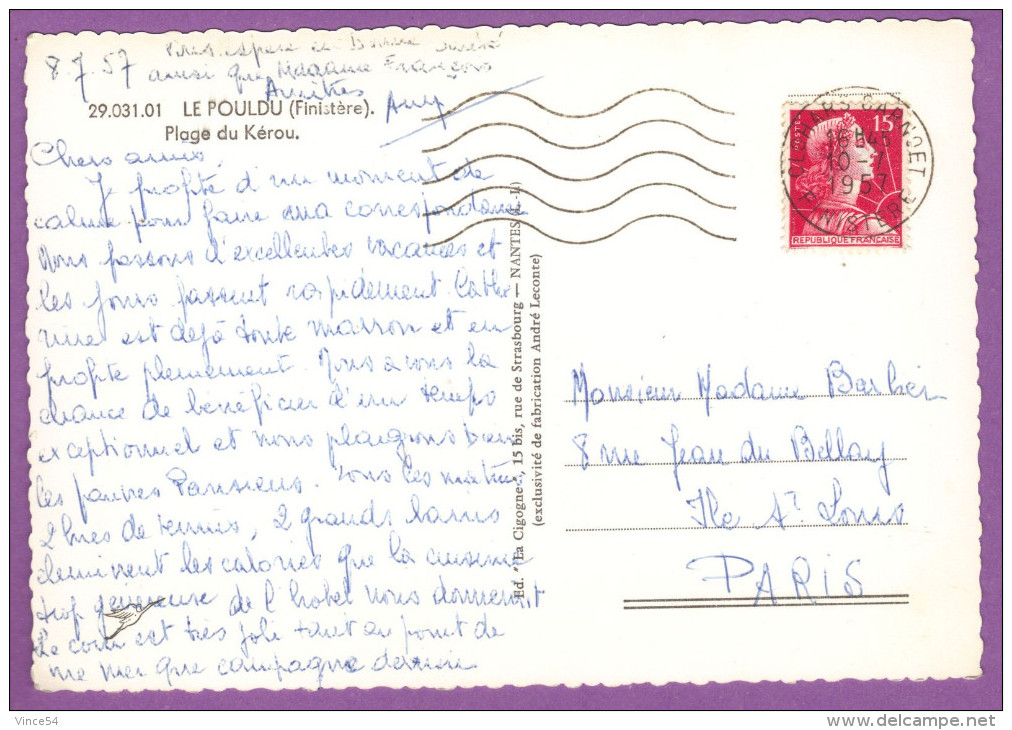 8.7.57
ainsi que Madame François
Amitiés
29.031.01 LE POULDU (Finistère).
Plage du Kérou.
Chers amis,
Je profite d'un moment de
calme pour faire ma correspondance
Nous passons d'excellentes vacances et
les jours passent rapidement. Cathe
rine est déjà toute marron et en
profite pleinement. Nous avons la
chance de bénéficier d'un temps
exceptionnel et nous plaignons bien
les pauvres Parisiens. Tous les matins
2 hres de tennis, 2 grands bains
éliminent les calories que la cuisine
trop généreuse de l'hotel nous donnent
Le coin est très joli tant au point de
vue mer que campagne
Ed. "La Cigogne", 15 bis, rue de Strasbourg — NANTES (L.-I.)
(exclusivité de fabrication André Leconte)
POSTES
15F
REPUBLIQUE FRANÇAISE
16H45
10-7
1957
FINISTERE
Monsieur Madame Barbier
8 rue Jean du Bellay
Ile St Louis
PARIS
Vince54
delcampe.net